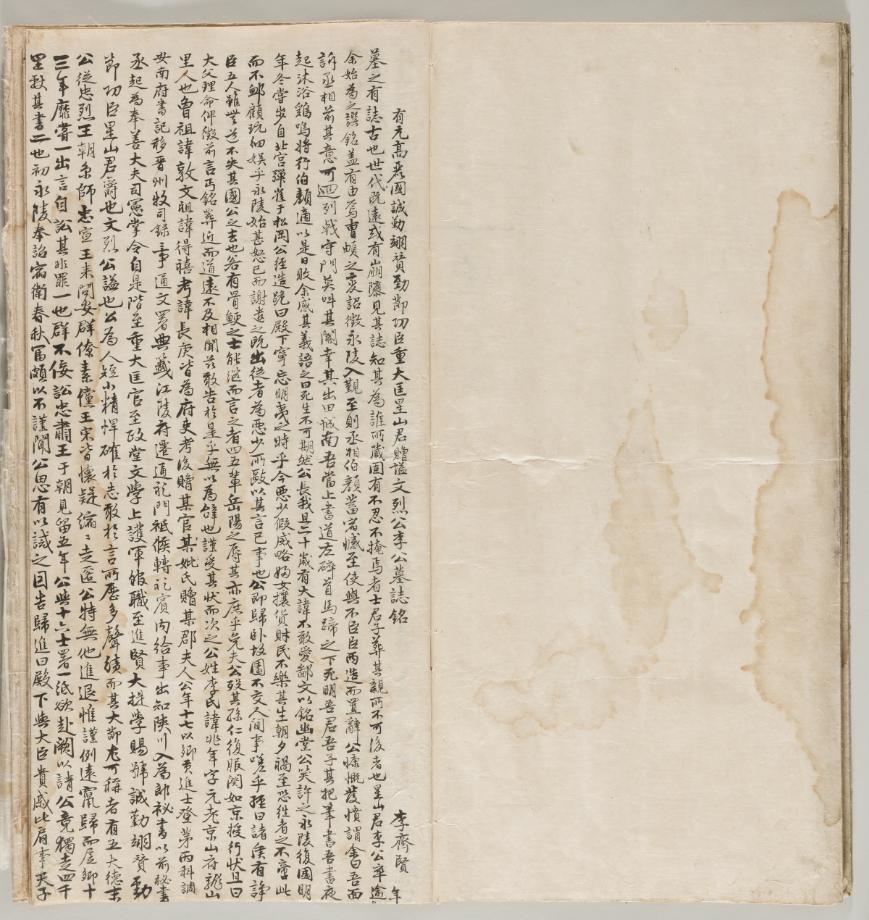 有元高麗國誠勤翊贊勁節功臣重大匡星山君贈謚文烈公李公墓誌銘
李齊賢
墓之有誌古也世代旣遠或有崩隳見其誌知其爲誰所藏固有不忍不掩焉者士君子葬其親所不可後者也星山君李公卒逾年
余始爲之譔銘盖有由焉曹頔之變詔徵永陵入覲至則丞相伯顔蓄宿憾至使與不臣臣兩造而置辭公慷慨發憤謂余曰吾面
訴丞相前其意可回列戟守門莫叫其閽幸其出田城南吾當上書道左碎首馬蹄之下死明吾君吾子其把筆書吾書夜
起沐浴鷄鳴將行伯顔適以是日敗余感其義語之曰死生不可期然公長我且二十歲有大諱不敢愛鄙文以銘幽堂公笑許之永陵復國明
年冬嘗步自北宮彈雀于松岡公徑造跪曰殿下寧忘明夷之時乎今惡少假威略婦女攘貨財民不樂其生朝夕禍至恐徃者之不啻此
而不卹顧玩細娛乎永陵始甚怒已而謝遣之旣出從者爲惡少所毆以其言已事也公卽歸卧故園不交人間事嗟乎經曰諸侯有諍
臣五人雖無道不失其國公之去也若有骨鯁之士能繼而言之者四五輩岳陽之辱其亦庶乎免夫公歿其孫仁復服闋如京授行狀且曰
大父理命俾徵前言丐銘葬近而道遠不及相聞玆敢告於是乎無以爲辭也謹受其狀而次之公姓李氏諱兆年字元老京山府龍山
里人也曾祖諱敦文祖諱得禧考諱長庚皆爲府吏考後贈某官某妣氏贈某郡夫人公年十七以鄕貢進士登第丙科調
安南府書記移晋州牧司錄三事通文署典籤江陵府遷通礼門祗候轉礼賓內給事出知陜川入爲郎祕書以前祕書
丞起爲奉善大夫司憲掌令自是階至重大匡官至政堂文學上護軍館職至進賢大提學賜號誠勤翊贊勁
節功臣星山君爵也文烈公謚也公爲人短小精悍確於志敢於言所歷多聲績而其大節尤可稱者有五大德末
公從忠烈王朝京師忠宣王来問安群僚素僮王宋皆懷疑縮縮走匿公特無他進退惟謹例遠竄歸而居鄕十
三年靡嘗一出言自訟其非罪一也群不佞訟忠肅王于朝見留五年公與十六士署一紙欲赴闕以請公竟獨走四千
里獻其書二也初永陵奉詔宿衛春秋富頗以不謹聞公思有以誡之因告歸進曰殿下與大臣貴戚比肩事天子